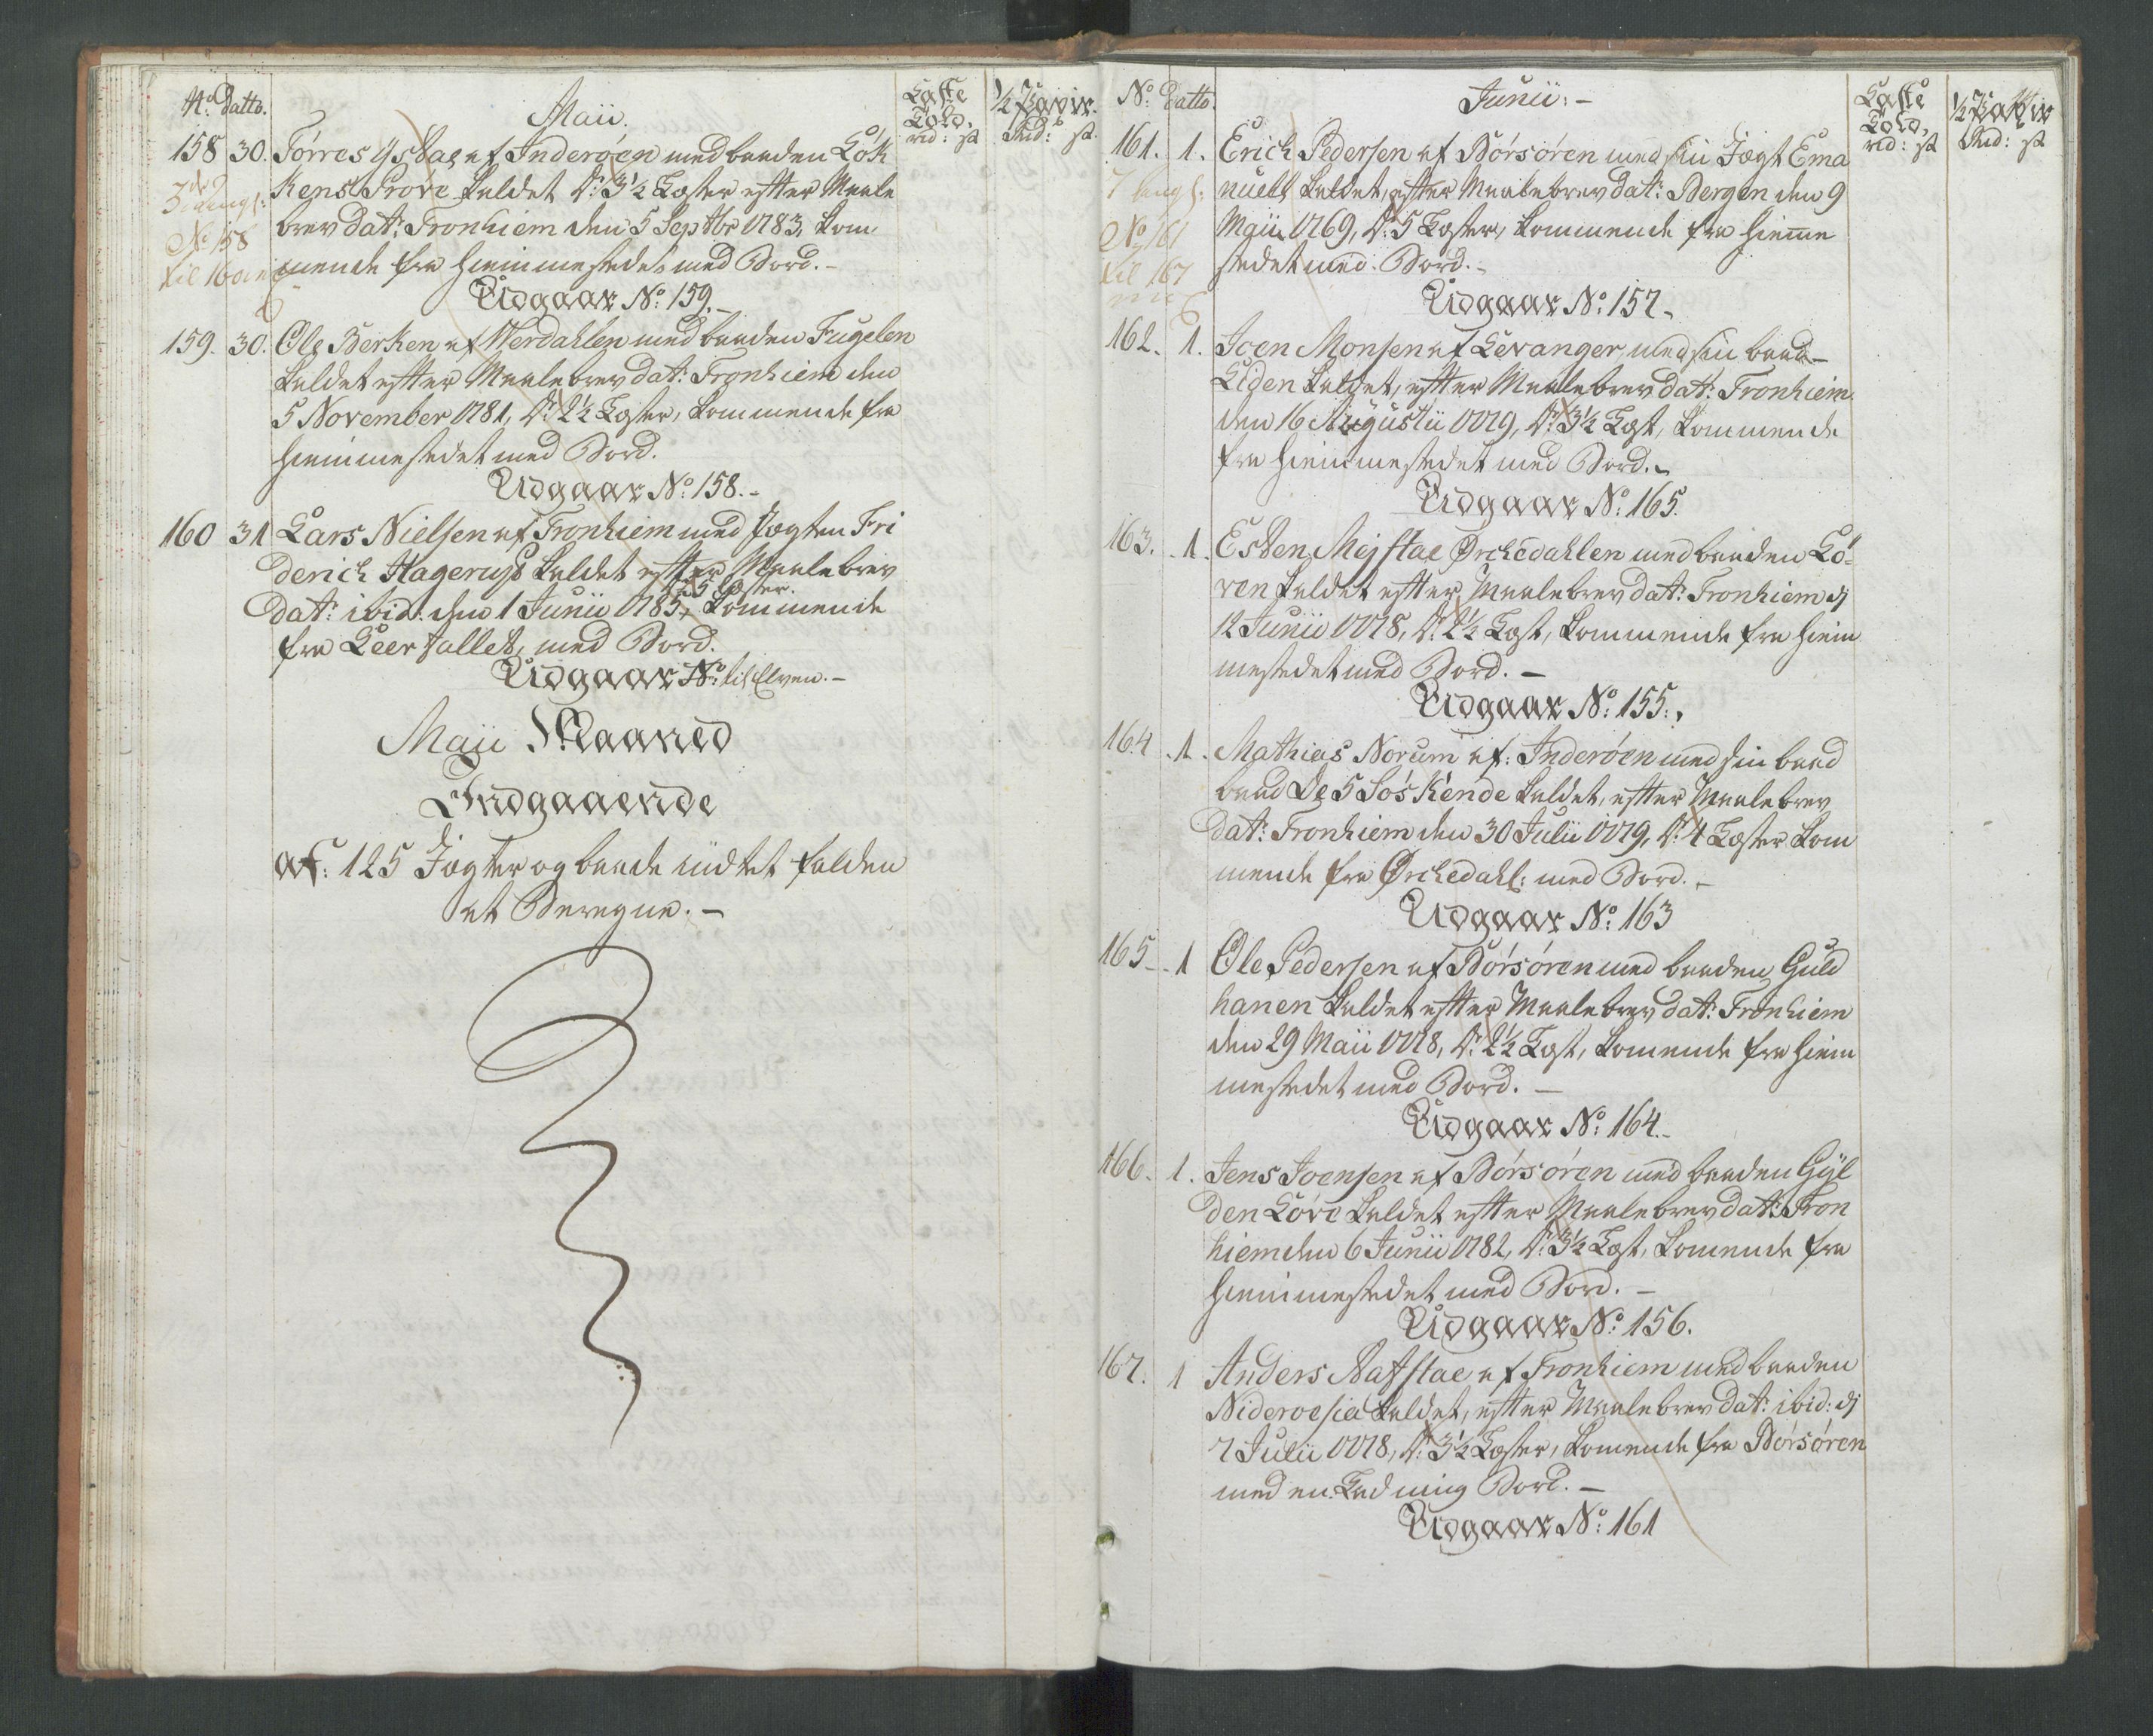 No datto.
Maii.
Læste
Told.
rd: ß
½ Papir.
Rd: ß.
158 30. Tørres ystae af Inderøen med baaden Løk
kens Prøve kaldet dr: 3½ Læster efter Maale
brev dat: Tronhiem den 5 Septbr 1783, kom
mende fra Hiemmestedet med Bord.-
No 158
til 160
Udgaar No: 159.-
159. 30. Ole Berken af Werdahlen med baaden Fugelen
kaldet efter Maalebrev dat: Tronhiem den
5 November 1781, dr: 2½ Læster, kommende fra
Hiemmestedet med Bord.
Udgaar No: 158.-
160 31 Lars Nielsen af Tronhiem med Jægten Fri
derich Hagerup kaldet efter Maalebrev
dr 5 Læster.
dat: ibid: den 1 Junii 1785, kommende
fra Leerfallet, med Bord.
Udgaar No: til Elven.-
Maii Maaned
Indgaaende
af: 125 Jægter og baade intet falden
at Beregne.-
No: Datto.
Junii:-
Læste
Told.
rd: ß
½ Papir
Rd: ß
161. 1. Erich Pedersen af Børsøren med sin Jægt Ema
nuell kaldet, efter Maalebrev dat: Bergen den 9
Maii 1769, dr: 5 Læster, kommende fra Hiemme
stedet med Bord.-
No 161
til 167
Udgaar No: 157.
162. 1. Joen Monsen af Levanger, med sin baad-
Liden kaldet, efter Maalebrev dat: Tronhiem
den 16 Augustii 1779, dr: 3½ Læst, kommende
fra Hiemmestedet med Bord.-
Udgaar No: 165.
163. 1. Esten Mejstae Ørchedahlen med baaden Lø-
ven kaldet efter Maalebrev dat: Tronhiem dj
12 Junii 1778, dr: 2½ Læst, kommende fra Hiem
mestedet med Bord.-
Udgaar No: 155.
164 1. Mathias Norum af: Inderøen med sin baad
baad De 5 Søskende kaldet, efter Maalebrev
dat: Tronhiem den 30 Julii 1779, dr: 4 Læster kom
mende fra Ørchedahl: med Bord.-
Udgaar No: 163
165 1 Ole Pedersen af Børsøren med baaden Guld
hanen kaldet efter Maalebrev dat: Tronhiem
den 29 Maii 1778, dr: 2½ Læst, komende fra Hiem
mestedet med Bord.-
Udgaar No: 164.-
166. 1. Jens Joensen af Børsøren med baaden Gyl
den Løve kaldet efter Maalebrev dat: Tron
hiem den 6 Junii 1782, dr: 3½ Læst, komende fra
Hiemmestedet med Bord.-
Udgaar No: 156.
167. 1 Anders Nafstae af Tronhiem med baaden
Niderosia kaldet, efter Maalebrev dat: ibid: dj
7 Julii 1778, dr: 3½ Læster, komende fra Børsøren
med en Ladning Bord.-
Udgaar No: 161